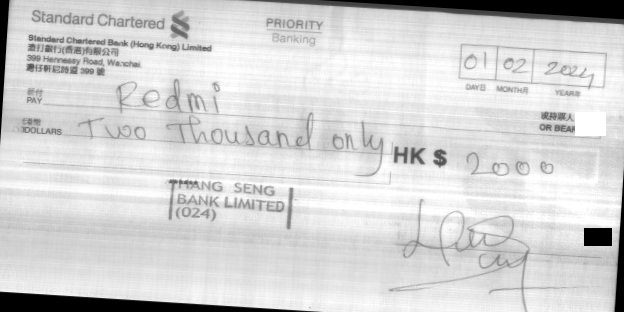 Standard Chartered
PRIORITY
Banking
Standard Chartered Bank (Hong Kong) Limited
渣打銀行(香港)有限公司
399 Hennessy Road, Wanchai
灣仔軒尼詩道 399 號
01 02 2024
DAY日 MONTH月 YEAR年
祈付
PAY Redmi
或持票人
OR BEAR
港幣
DOLLARS Two Thousand only
HK $ 2000
HANG SENG
BANK LIMITED
(024)